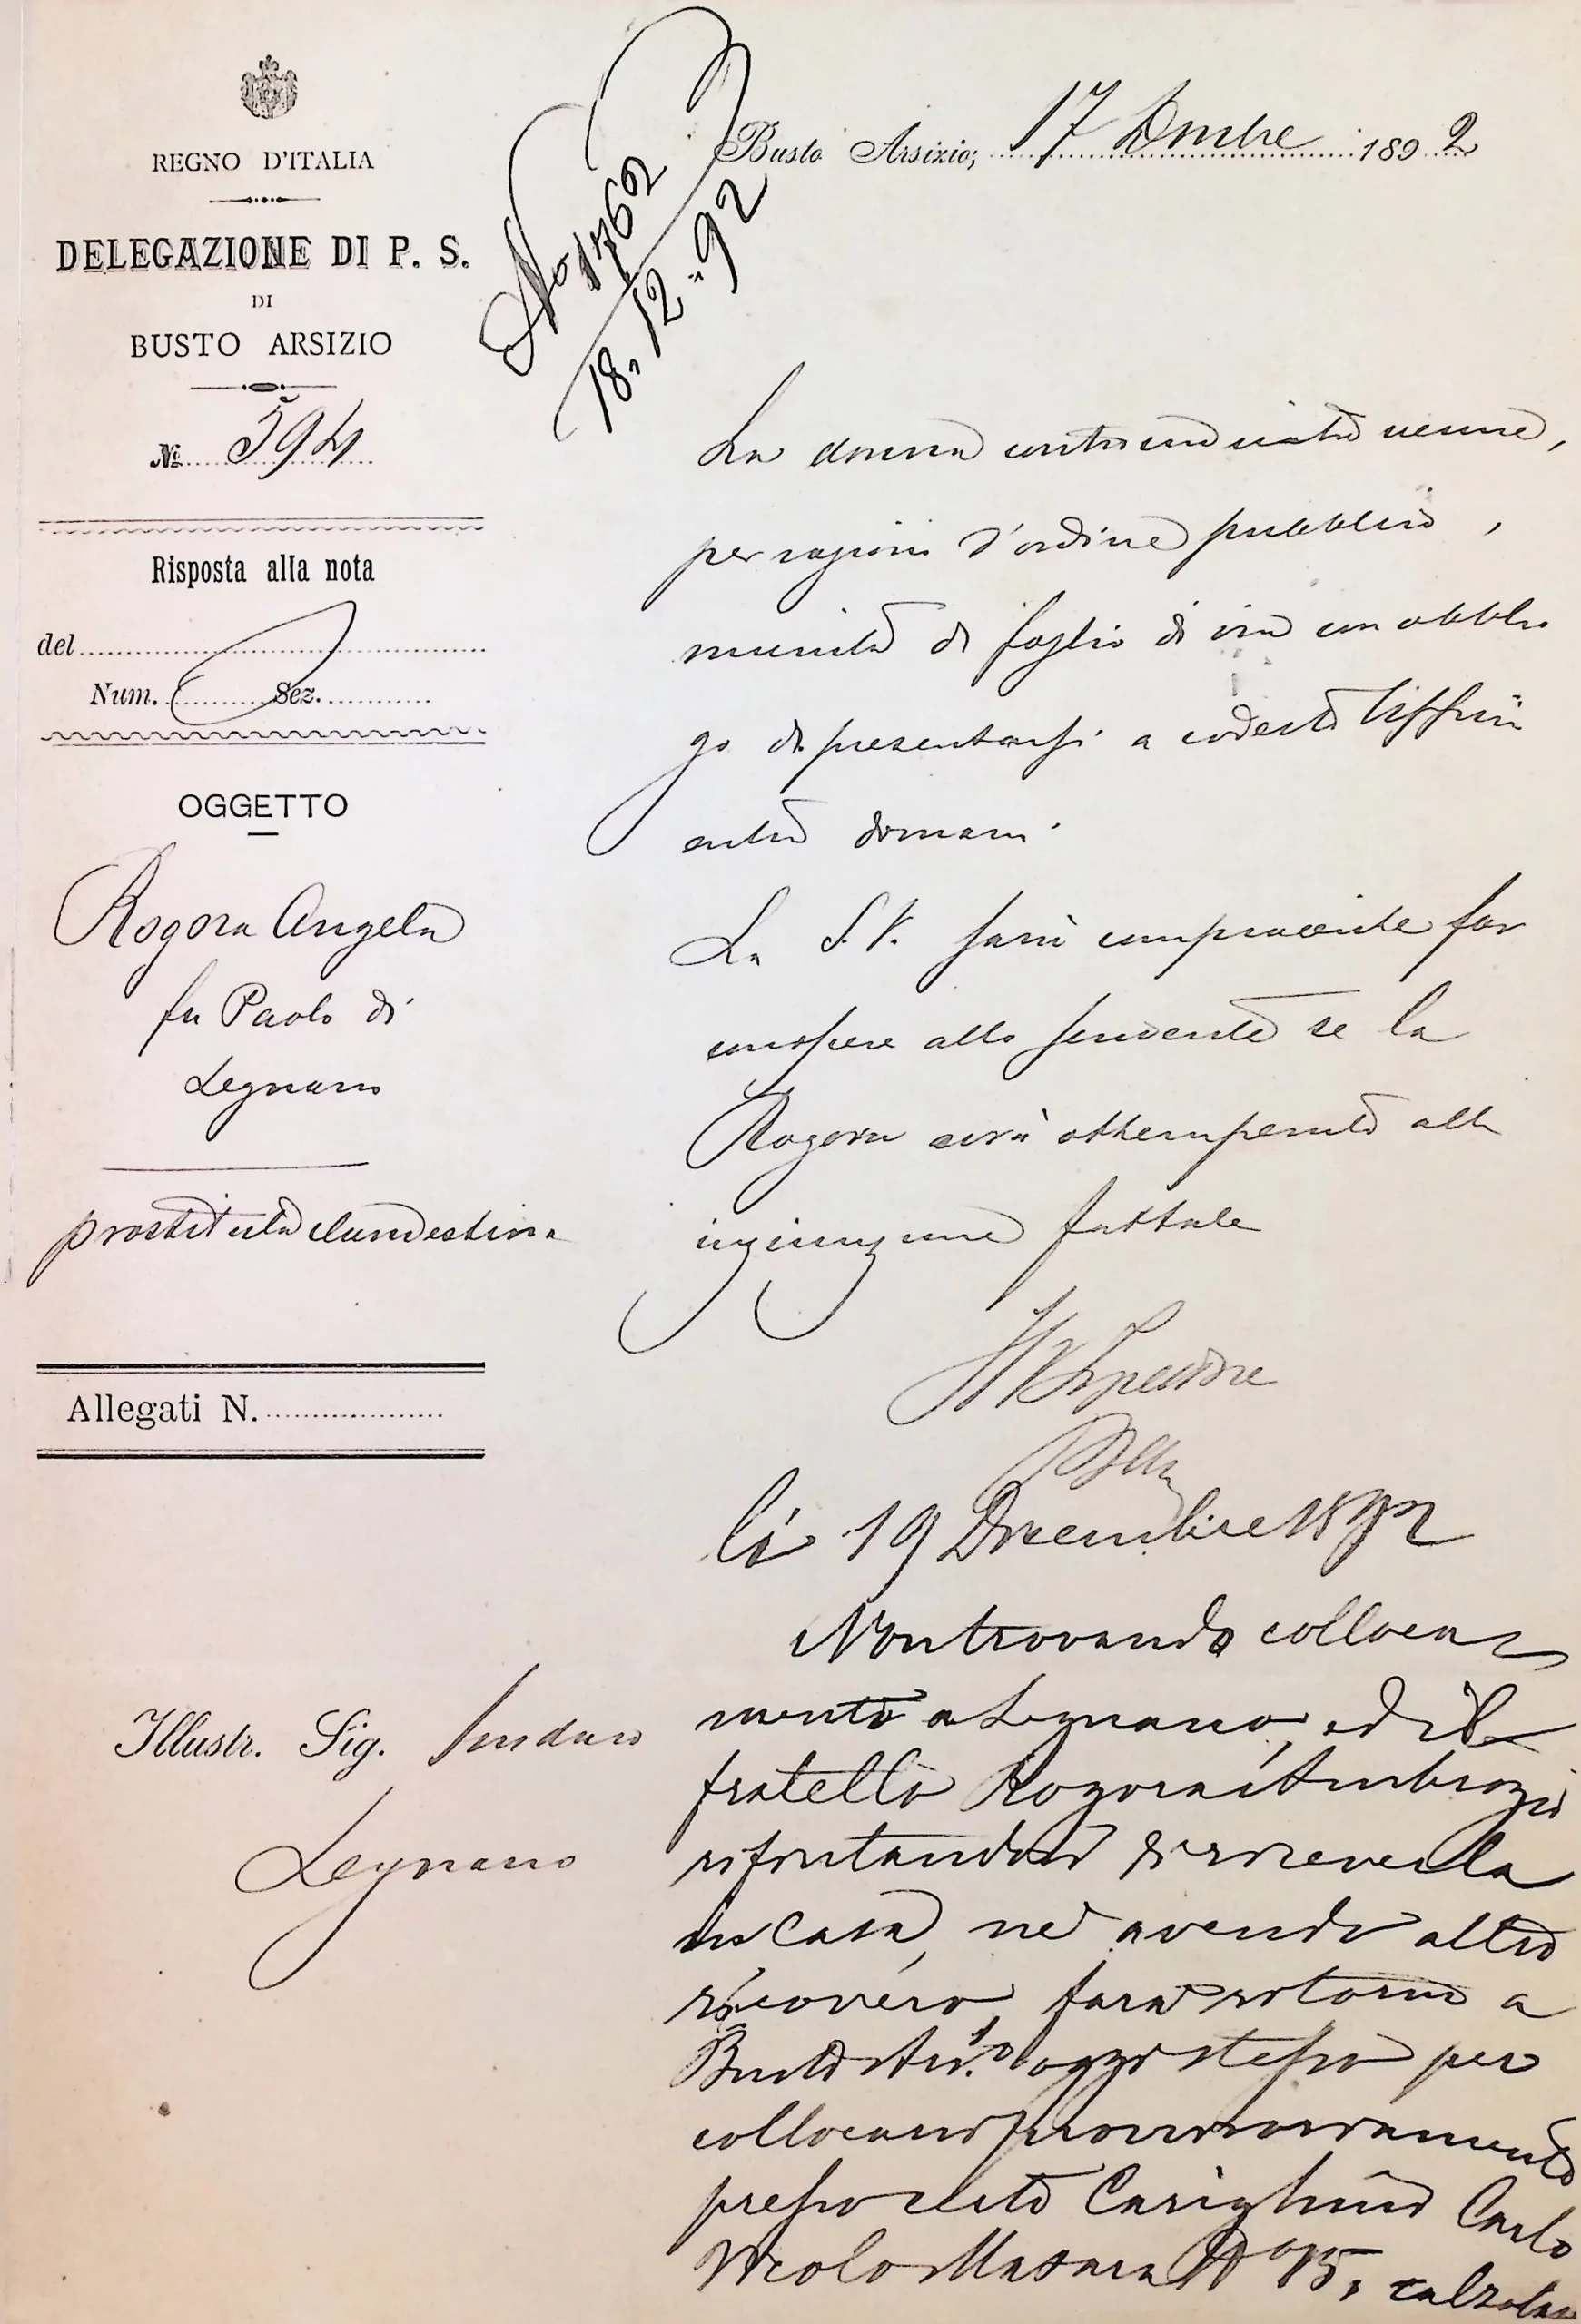 REGNO D'ITALIA
DELEGAZIONE DI P. S.
DI
BUSTO ARSIZIO
№ 594
Risposta alla nota
del
Num. Sez.
OGGETTO
Rogora Angela
fu Paolo di
Legnano
prostituta clandestina
Allegati N.
Illustr. Sig. Sindaco
Legnano
No 1762
18.12.92
Busto Arsizio; 17 Dmbre 1892
La donna controindicata venne,
per ragioni d'ordine pubblico,
munita di foglio di via con obbli
go di presentarsi a codesto Uffici
entro domani.
La S.V. sarà compiacente far
conoscere allo scrivente se la
Rogora avrà ottemperato alla
ingiunzione fattale
L'Ispettore
lì 19 Dicembre 1892
Non trovando colloca
mento a Legnano, ed il
fratello Rogora Ambrogio
rifiutandosi di riceverla
in casa, nè avendo altro
ricovero, farà ritorno a
Busto Ars.o oggi stesso per
collocarsi provvisoriamente
presso certo Carlo
Vicolo No 15, calzolaio